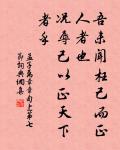 吾未聞枉己而正
人者也
況辱己以正天下
者乎
孟子萬章章句上第七
節詞典調集